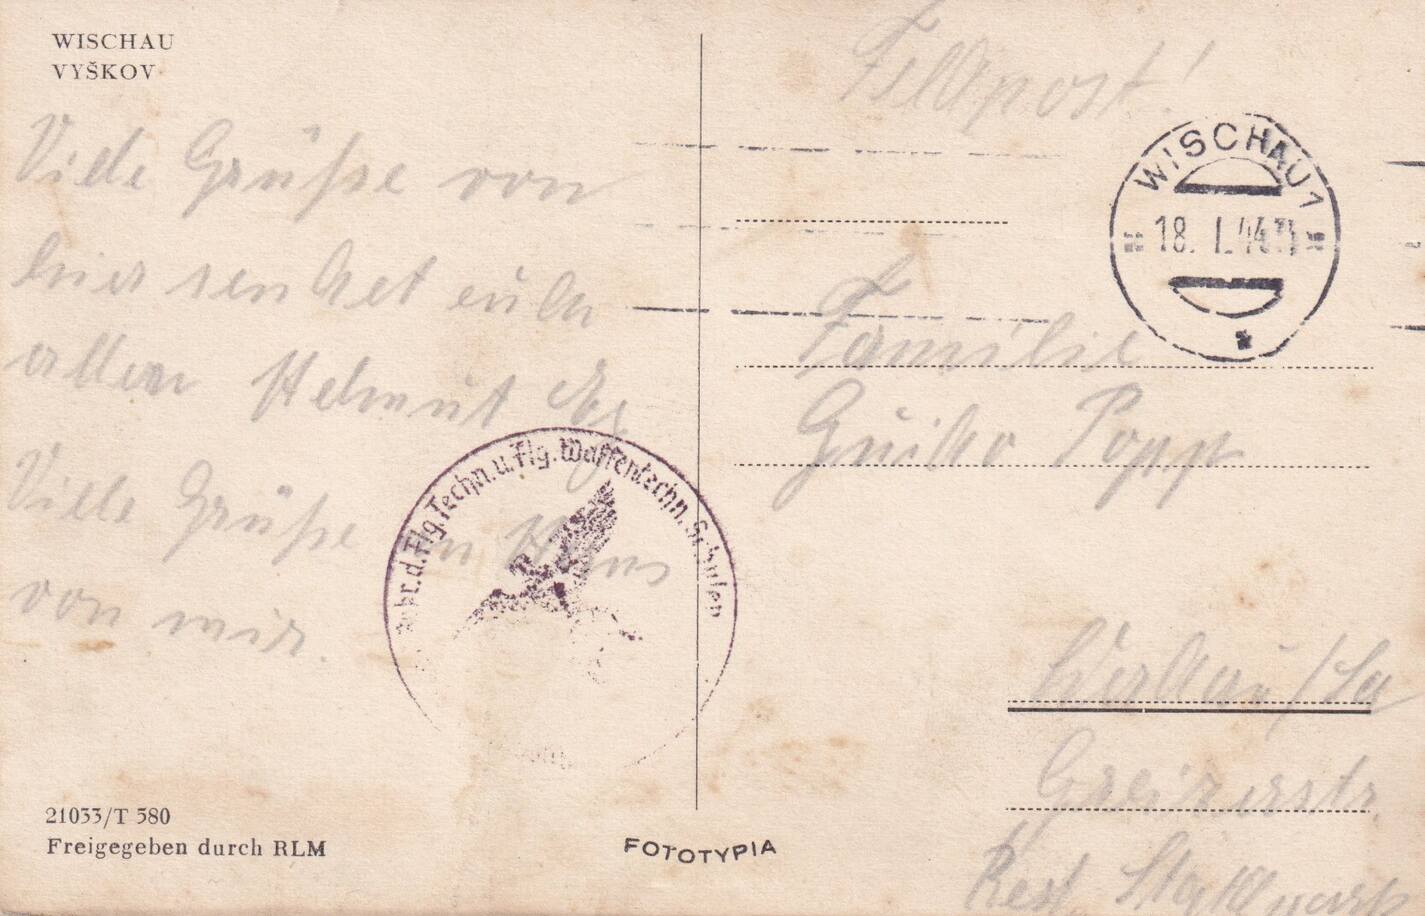 WISCHAU
VYŠKOV
Viele Grüsse von
hier sendet euch
allen Helmut
Viele Grüße an Hans
von mir.
d. Flg. Techn. u. Flg. Waffentechn. Schulen
21033/T 580
Freigegeben durch RLM
FOTOTYPIA
Feldpost!
WISCHAU 1
18. I. 44
Familie
Guido Popp
Werdau/Sa
Greizerstr.
Rest.